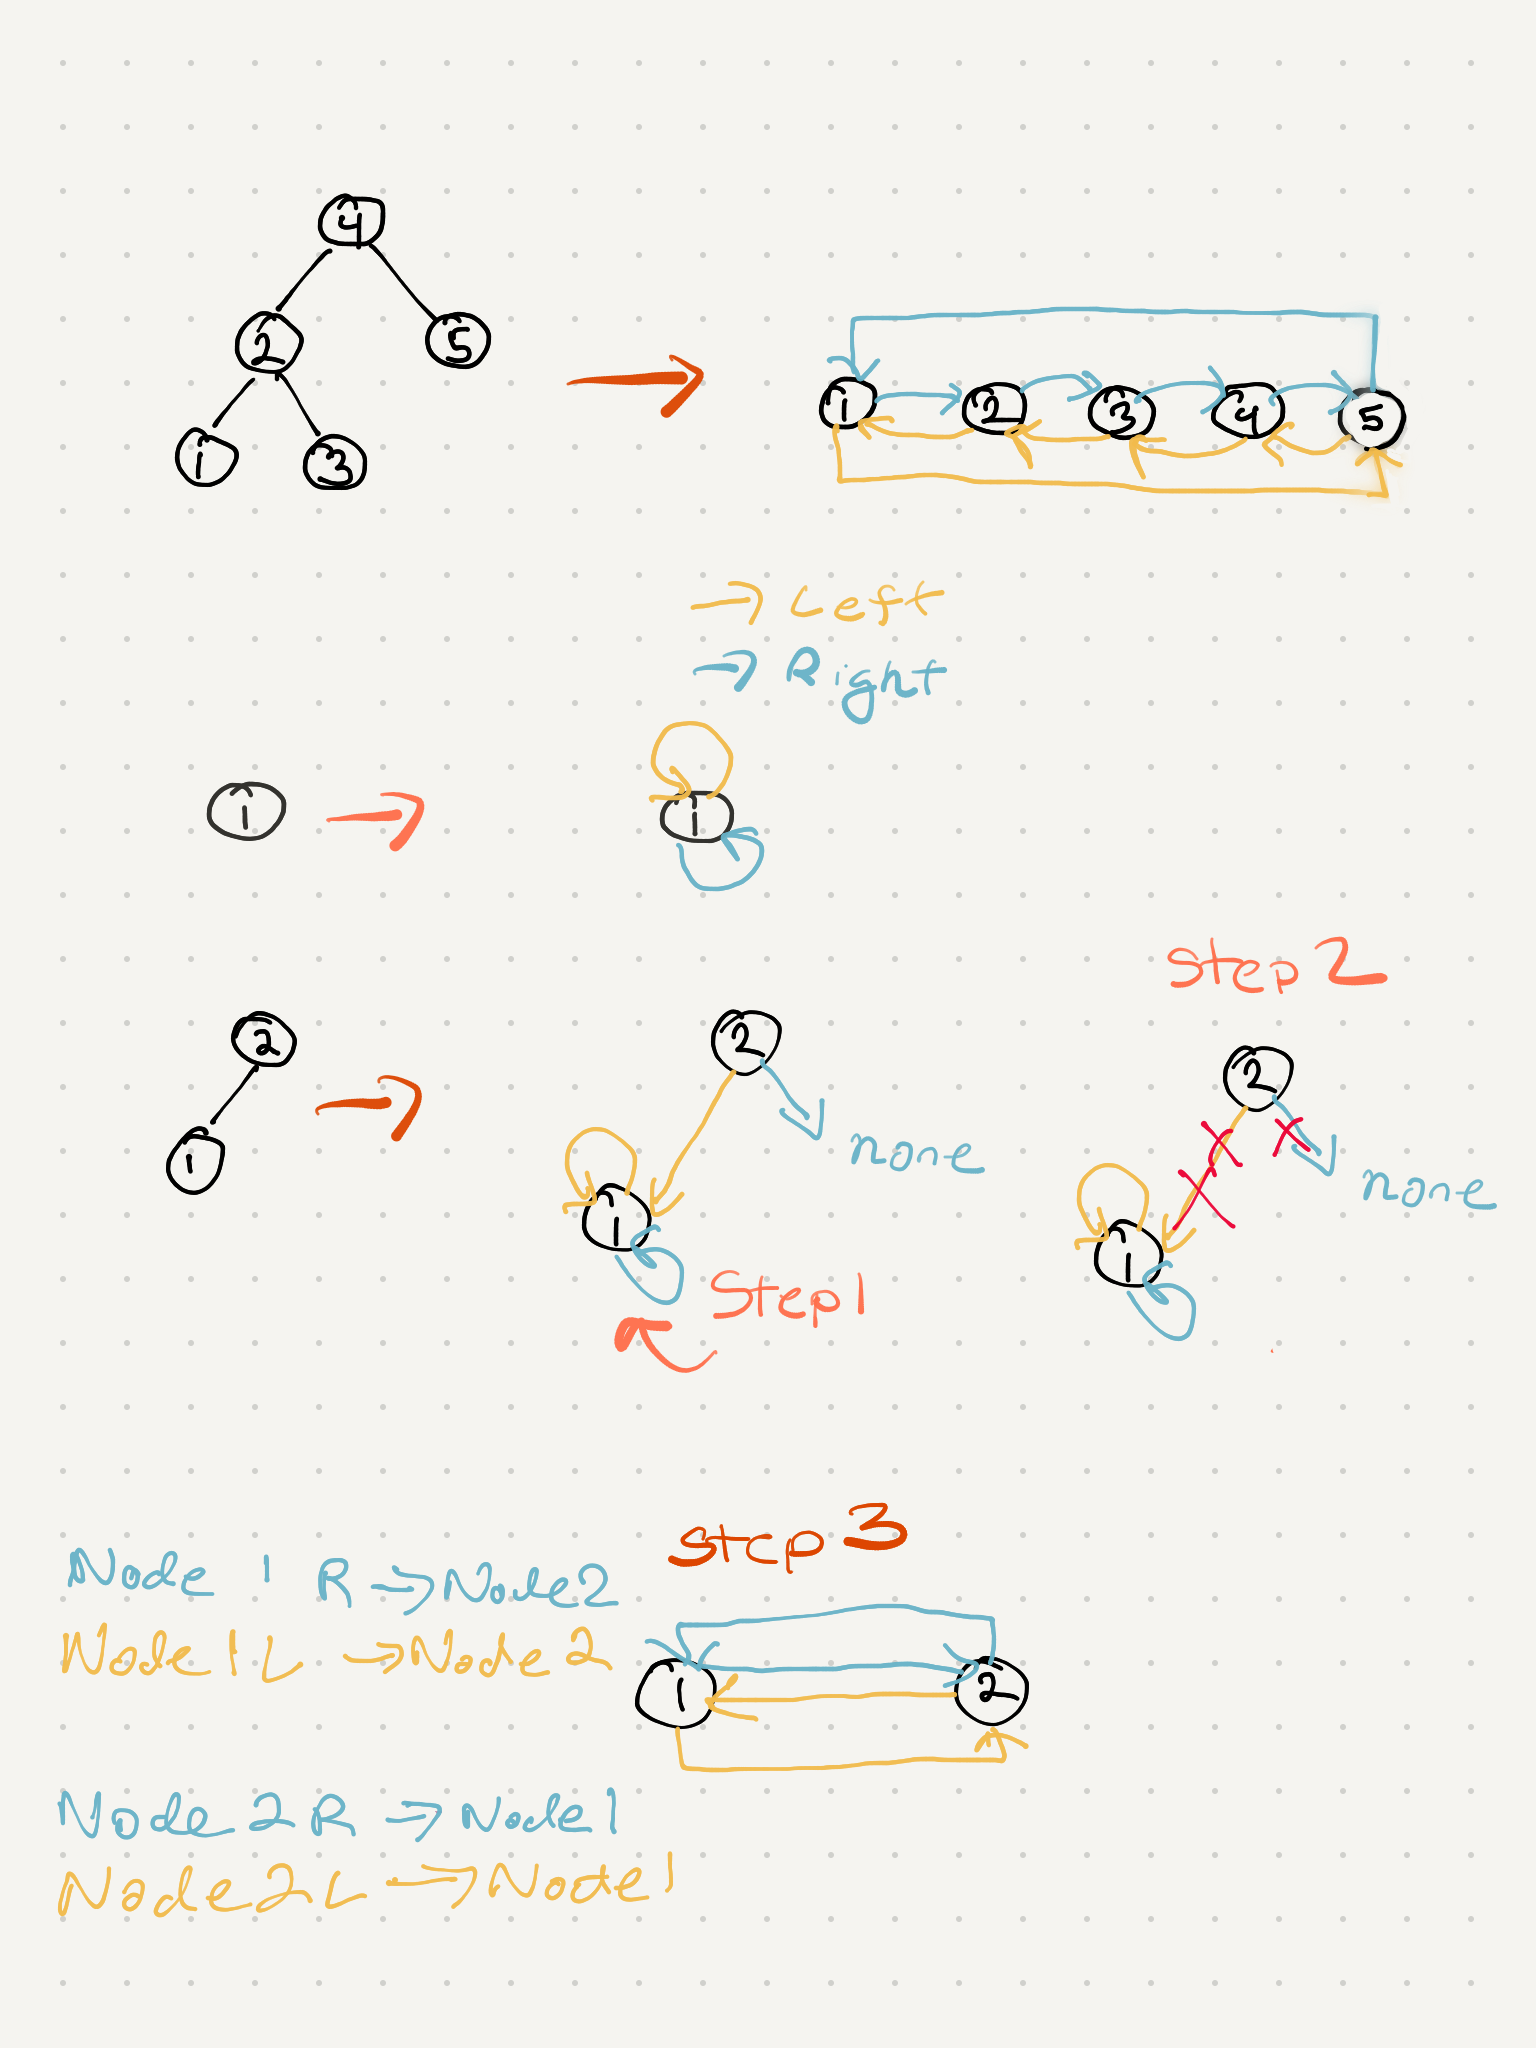 4
2 5
1 3
1 2 3 4 5
→ Left
→ Right
1 → 1
Step 2
2 → 2 none
1 1
Step 1
2 none
1
Step 3
Node 1 R → Node 2
Node 1 L → Node 2
1 2
Node 2 R → Node 1
Node 2 L → Node 1